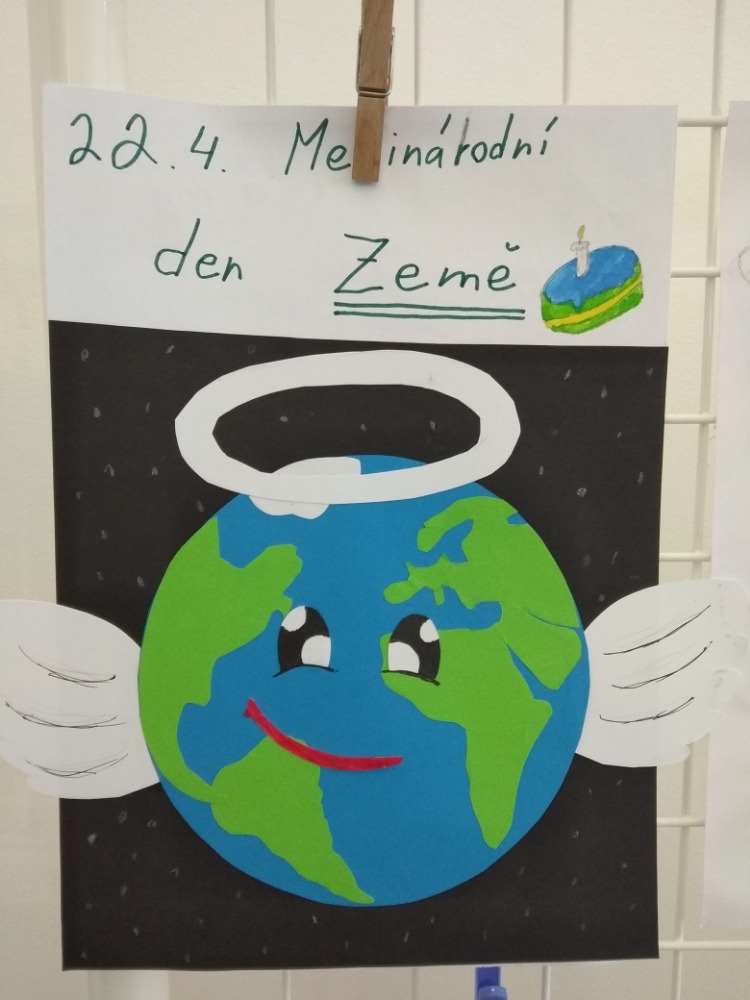 22.4. Mezinárodní
den Země